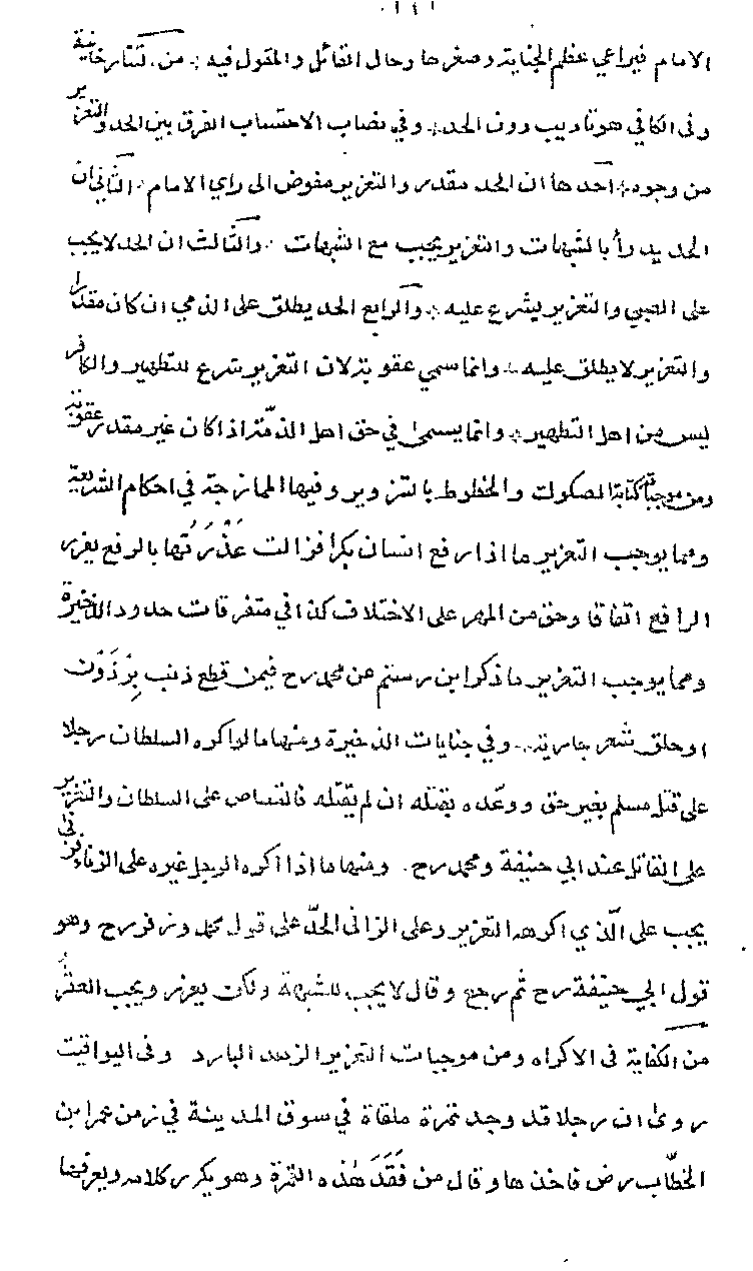 ١٤١
الامام فيراعي عظم الجناية وصغرها وحال القائل والمقول فيه ؞ من تتارخانية
وفى الكافي هو تاديب دون الحد ؞ وفي نصاب الاحتساب الفرق بين الحد والتعزير
من وجوه ؞ احدها ان الحد مقدر والتعزير مفوض الى راي الامام ؞ الثاني ان
الحد يدرأ بالشبهات والتعزير يجب مع الشبهات ؞ والثالث ان الحد لا يجب
على الصبي والتعزير يشرع عليه ؞ والرابع الحد يطلق على الذمي ان كان مقدرا
والتعزير لا يطلق عليه ؞ وانما سمي عقوبة لان التعزير شرع للتطهير والكافر
ليس من اهل التطهير ؞ وانما يسمى في حق اهل الذمّة اذا كان غير مقدر عقوبة
ومن موجباته كتابة الصكوك والخطوط بالتزوير وفيها الممازجة في احكام الشريعة
ومما يوجب التعزير ما اذا رفع انسان بكرا فزالت عَذْرَتُها بالرفع يعزر
الرافع اتفاقا وحق من المهر على الاختلاف كذا في متفرقات حدود الذخيرة
ومما يوجب التعزير ما ذكر ابن رستم عن محمد رح فيمن قطع ذنب بِرْذَوْن
او حلق شعر جارية ؞ وفي جنايات الذخيرة ومنها ما لو اكره السلطان رجلا
على قتل مسلم بغير حق ووعّده بقتله ان لم يقتله فالقصاص على السلطان والتعزير
على القاتل عند ابي حنيفة ومحمد رح ؞ ومنها ما اذا اكره الرجل غيره على الزناء فزنى
يجب على الّذي اكرهه التعزير وعلى الزاني الحدّ على قول محمد وزفر رح وهو
قول ابي حنيفة رح ثم رجع وقال لا يجب للشبهة ولكن يعزر ويجب العقر
من الكفاية فى الاكراه ومن موجبات التعزير الزهد البارد وفى اليواقيت
روى ان رجلا قد وجد تمرة ملقاة في سوق المدينة في زمن عمر ابن
الخطّاب رض فاخذها وقال من فَقَدَ هٰذه التمرة وهو يكرر كلامه ويعرفها